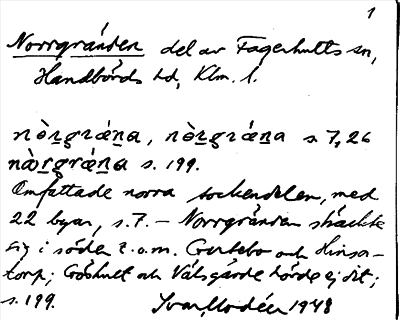 1
Norrgränden del av Fagerhults sn,
Handbörds hd, Klm. l.
nòṟgrǽṉa, nòṟgrǽṉa s. 7, 26
nàṟgrǽṉa s. 199.
Omfattade norra sockendelen, med
22 byar, s. 7. – Norrgränden sträckte
sig i söder t.o.m. och Hinsa-
torp; Gåshult och Välsgärde hörde ej dit;
s. 199. Ivar Modéer 1948